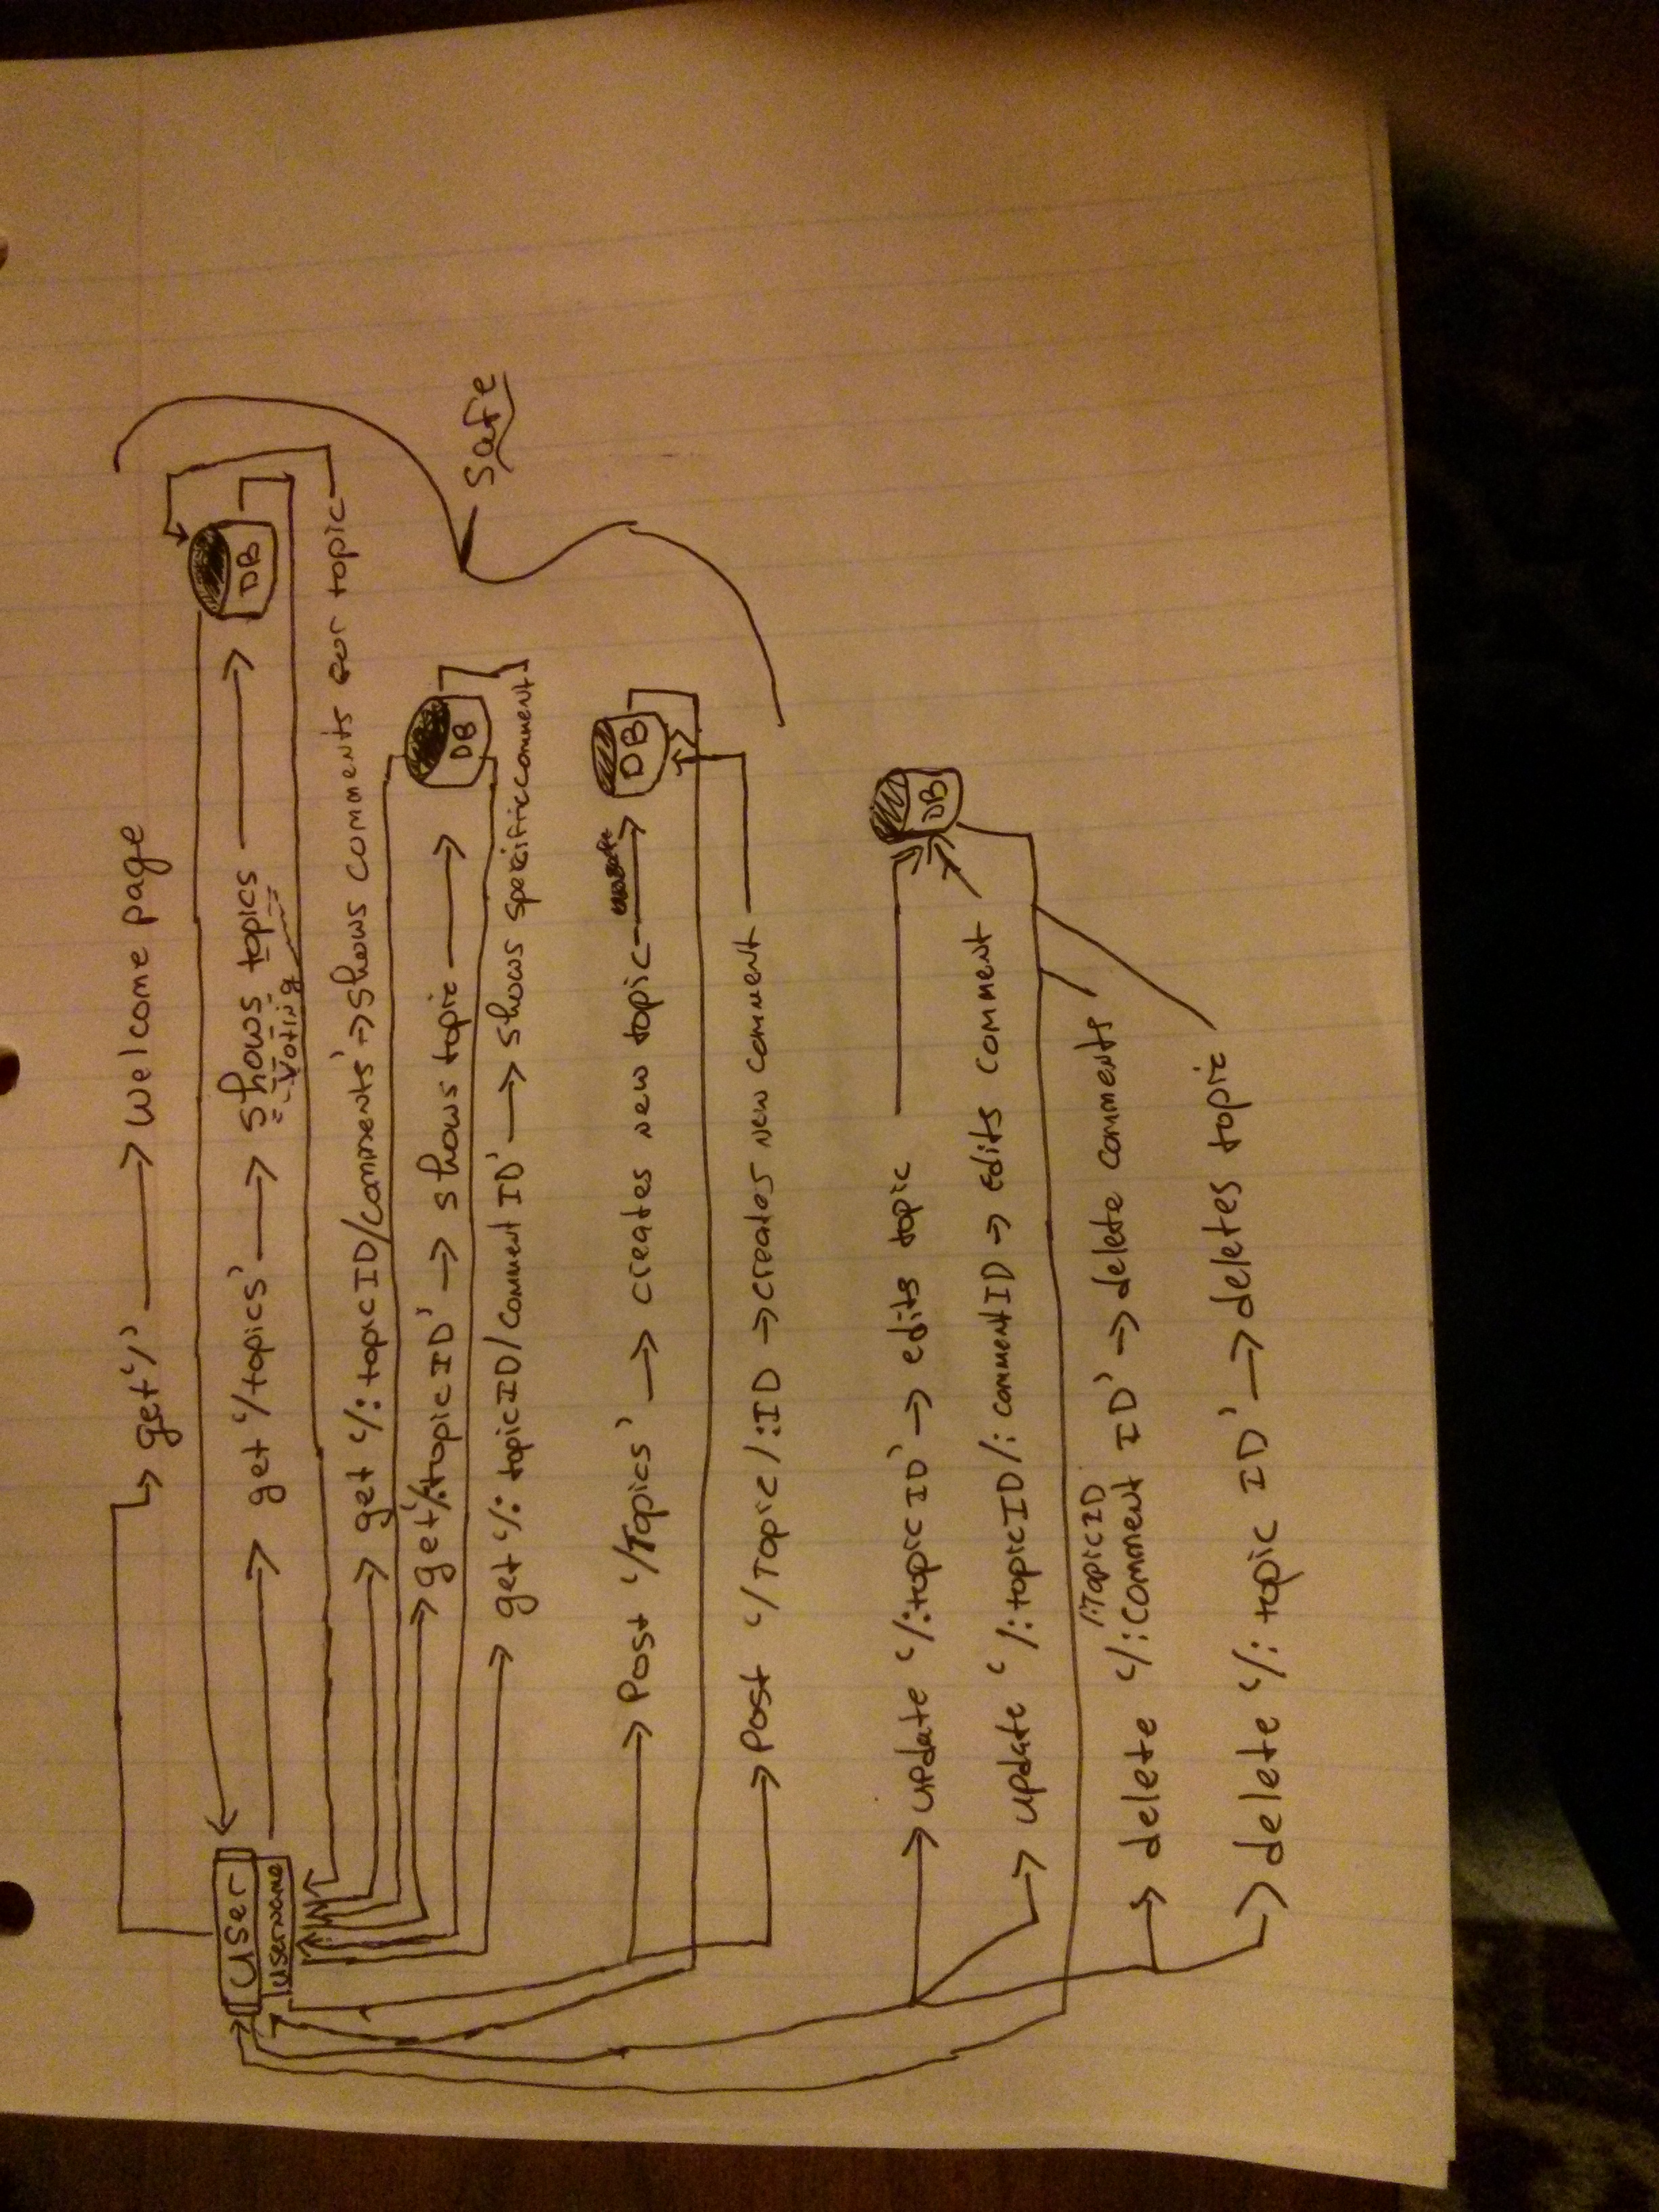 User
username
get '/' → welcome page
get '/topics' → shows topics → DB
Voting
get '/:topicID/comments' → shows comments for topic
get '/:topicID' → shows topic → DB
get '/:topicID/commentID' → shows specific comment
Safe
Post '/Topics' → creates new topic → DB
Post '/Topic/:ID → creates new comment
update '/:topicID' → edits topic DB
update '/:topicID/:commentID → edits comment
/:TopicID
delete '/:comment ID' → delete comments
delete '/:topic ID' → deletes topic